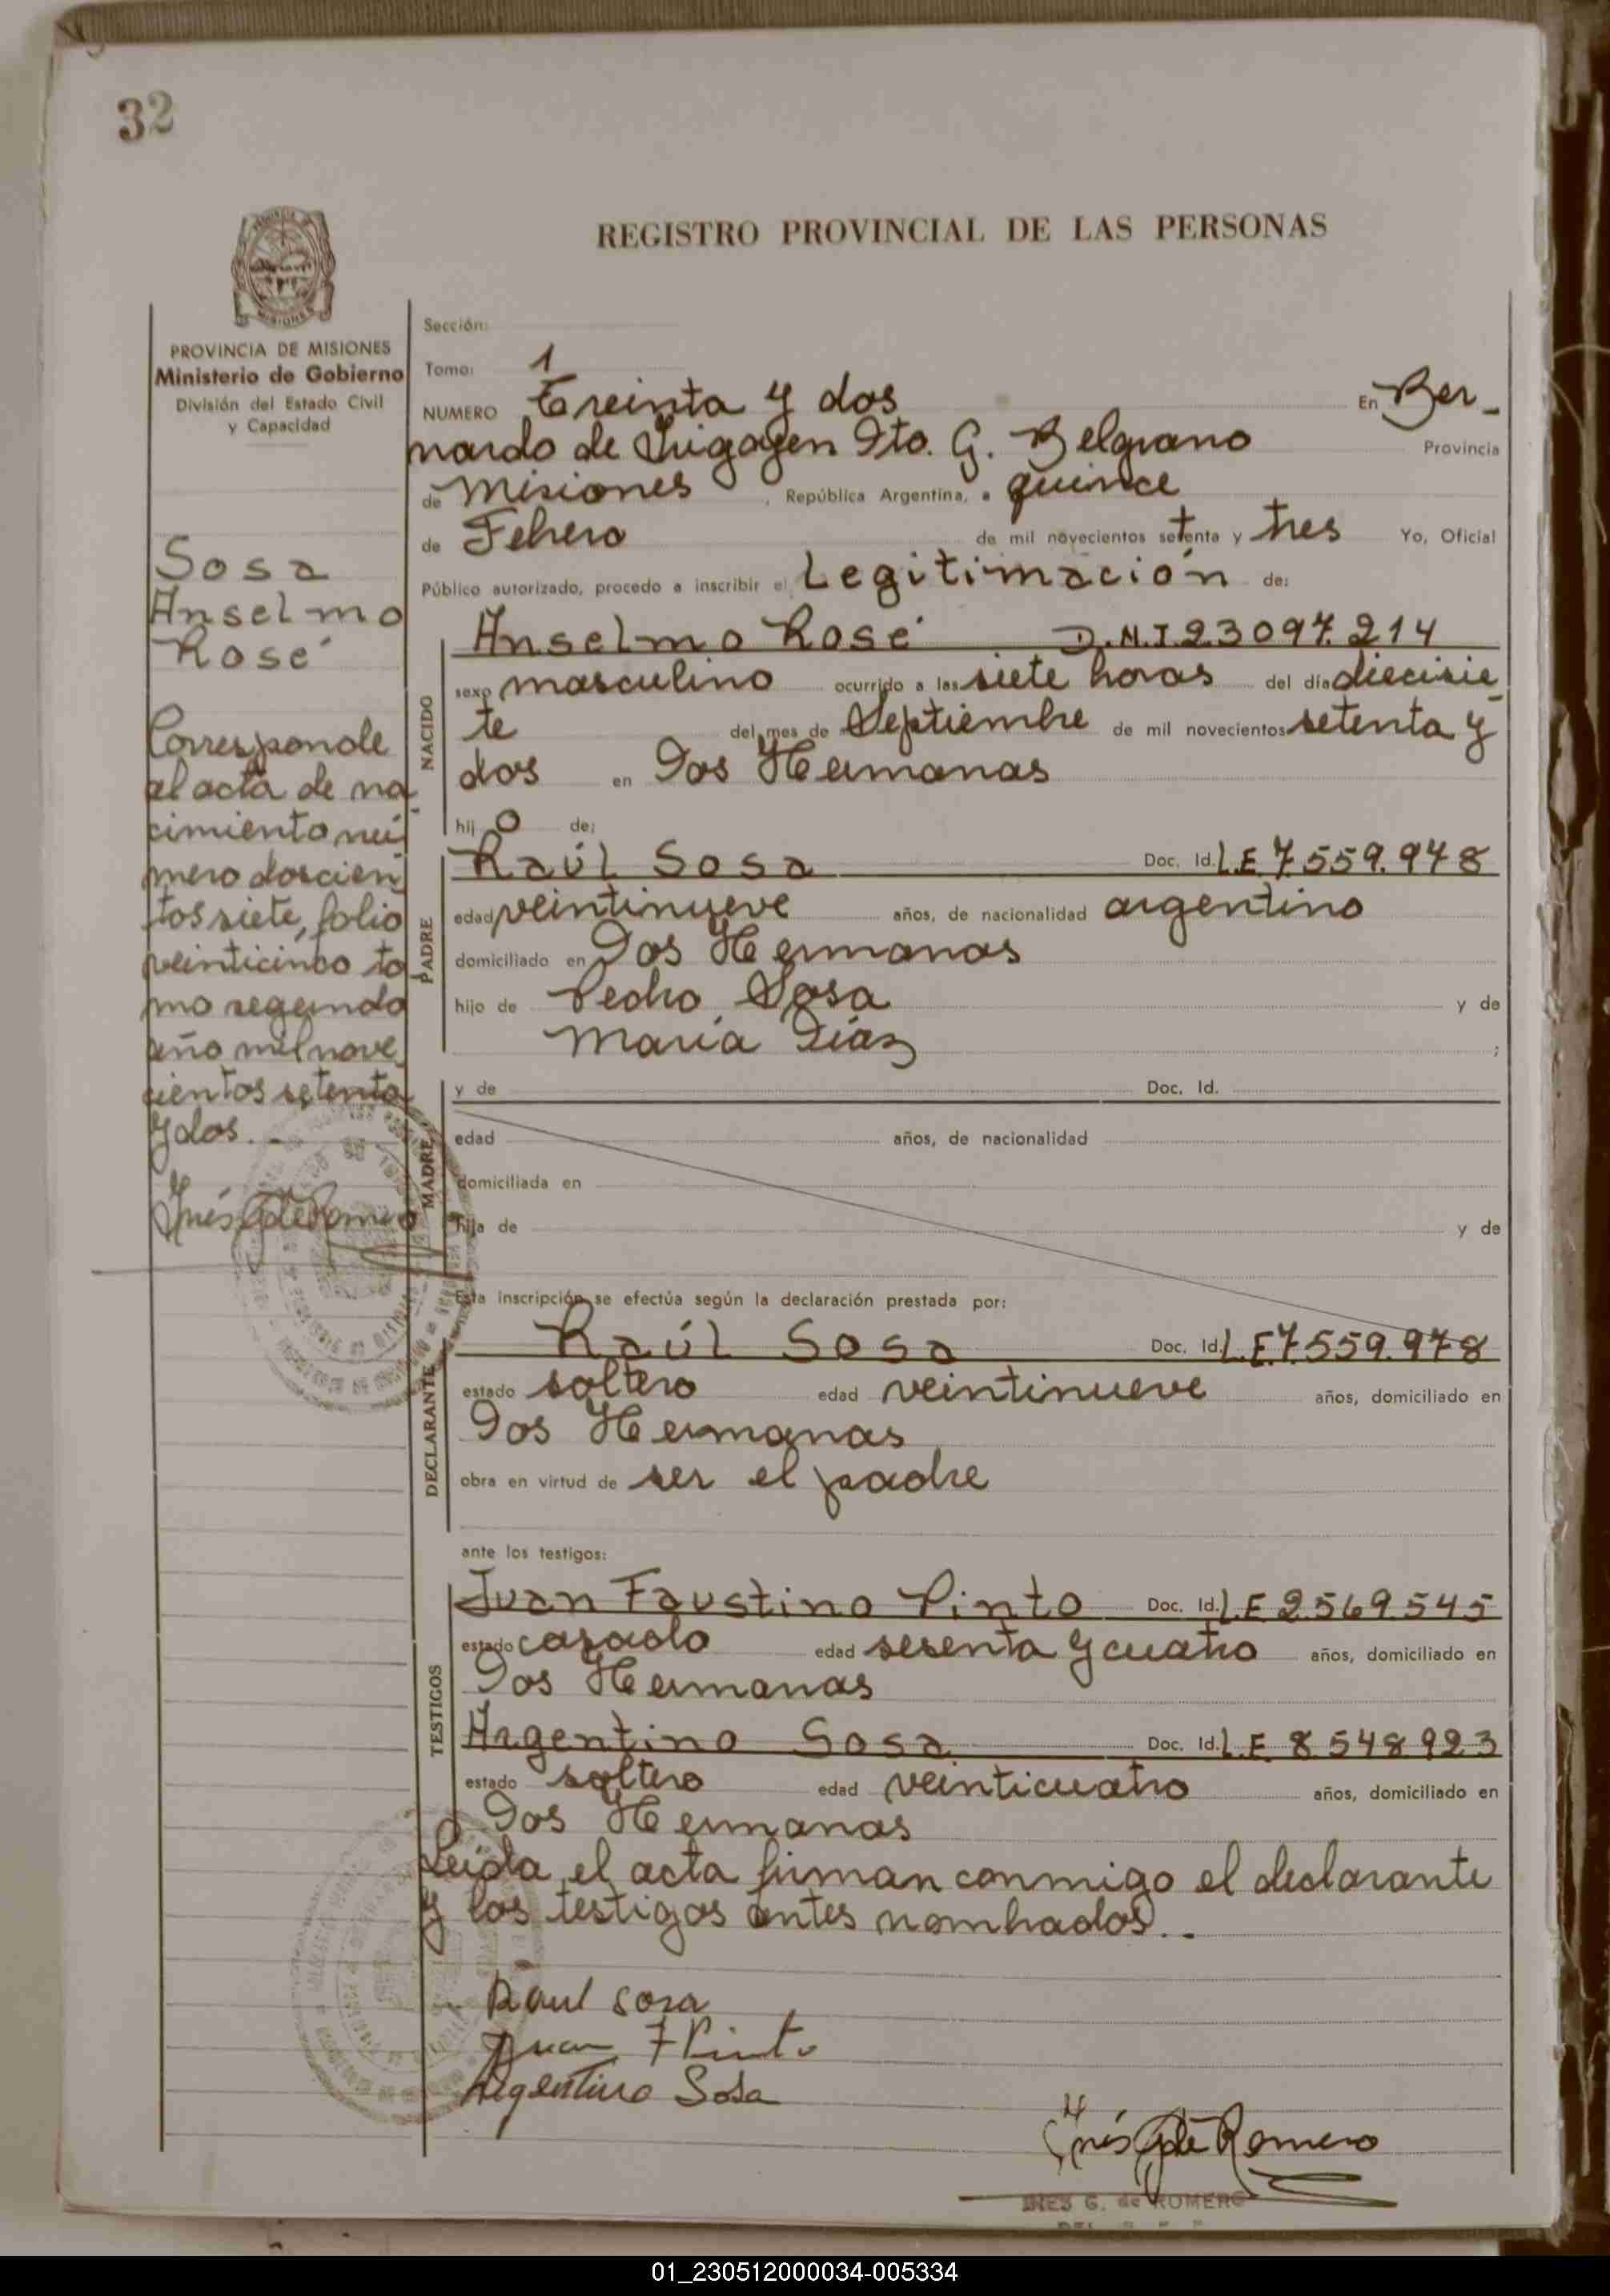 32
REGISTRO PROVINCIAL DE LAS PERSONAS
MISIONES
PROVINCIA DE MISIONES
Ministerio de Gobierno
División del Estado Civil
y Capacidad
Sosa
Anselmo
Rosé
Corresponde
al acta de na
cimiento nú
mero doscien
tos siete, folio
veinticinco to
mo segundo
año mil nove
cientos setenta
y dos.-
Inés G de Romero
Sección:
Tomo: 1
NUMERO Treinta y dos En Ber-
nardo de Irigoyen Dto. G. Belgrano Provincia
de Misiones, República Argentina, a quince
de Febrero de mil novecientos setenta y tres Yo, Oficial
Público autorizado, procedo a inscribir el Legitimación de:
NACIDO
Anselmo Rosé D.N.I 23097.214
sexo masculino ocurrido a las siete horas del día diecisie
te del mes de Septiembre de mil novecientos setenta y
dos en Dos Hermanas
hij o de:
PADRE
Raúl Sosa Doc. Id. L.E 7.559.978
edad veintinueve años, de nacionalidad argentino
domiciliado en Dos Hermanas
hijo de Pedro Sosa y de
María Díaz ;
MADRE
y de Doc. Id.
edad años, de nacionalidad
domiciliada en
hija de y de
Esta inscripción se efectúa según la declaración prestada por:
DECLARANTE
Raúl Sosa Doc. Id. L.E.7.559.978
estado soltero edad veintinueve años, domiciliado en
Dos Hermanas
obra en virtud de ser el padre
ante los testigos:
TESTIGOS
Juan Faustino Pinto Doc. Id. L.E 2.569.545
estado casado edad sesenta y cuatro años, domiciliado en
Dos Hermanas
Argentino Sosa Doc. Id. L.E. 8548923
estado soltero edad veinticuatro años, domiciliado en
Dos Hermanas
Leida el acta firman conmigo el declarante
y los testigos antes nombrados..-
Raul Sosa
Juan F Pinto
Argentino Sosa
Inés G de Romero
INES G. de ROMERO
01_230512000034-005334